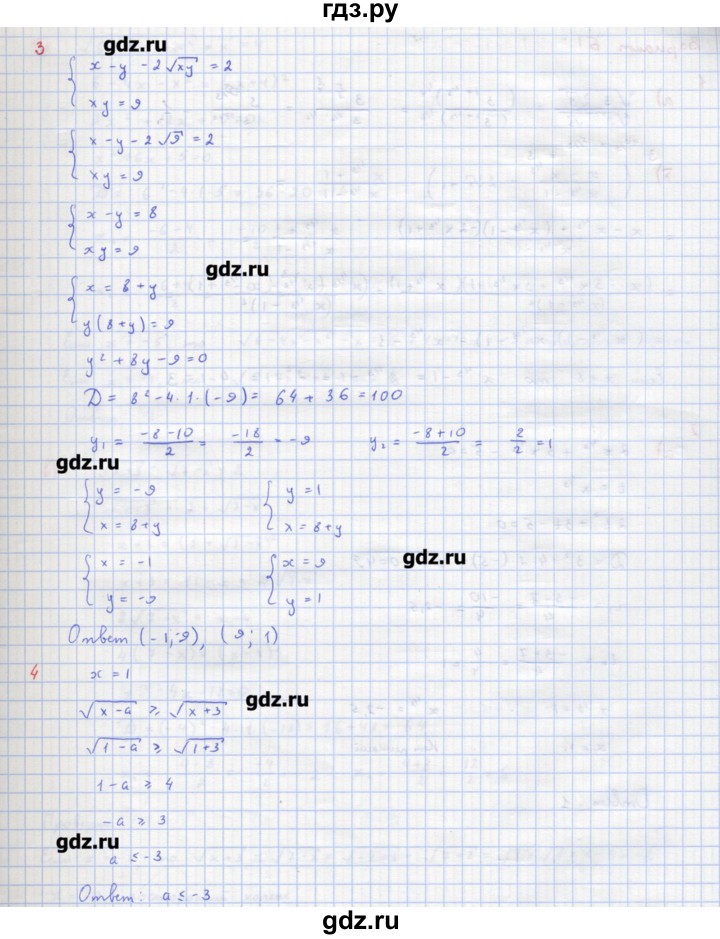 гдз.ру
gdz.ru
3
x - y - 2√xy = 2
xy = 9
x - y - 2√9 = 2
xy = 9
x - y = 8
xy = 9
gdz.ru
x = 8 + y
y(8+y) = 9
y² + 8y - 9 = 0
D = 8² - 4·1·(-9) = 64 + 36 = 100
y₁ = (-8-10)/2 = -18/2 = -9 y₂ = (-8+10)/2 = 2/2 = 1
gdz.ru
y = -9 y = 1
x = 8+y x = 8+y
gdz.ru
x = -1 x = 9
y = -9 y = 1
Ответ (-1;-9), (9; 1)
4 x = 1
gdz.ru
√x-a ≥ √x+3
√1-a ≥ √1+3
1-a ≥ 4
-a ≥ 3
gdz.ru
a ≤ -3
Ответ: a ≤ -3
gdz.ru